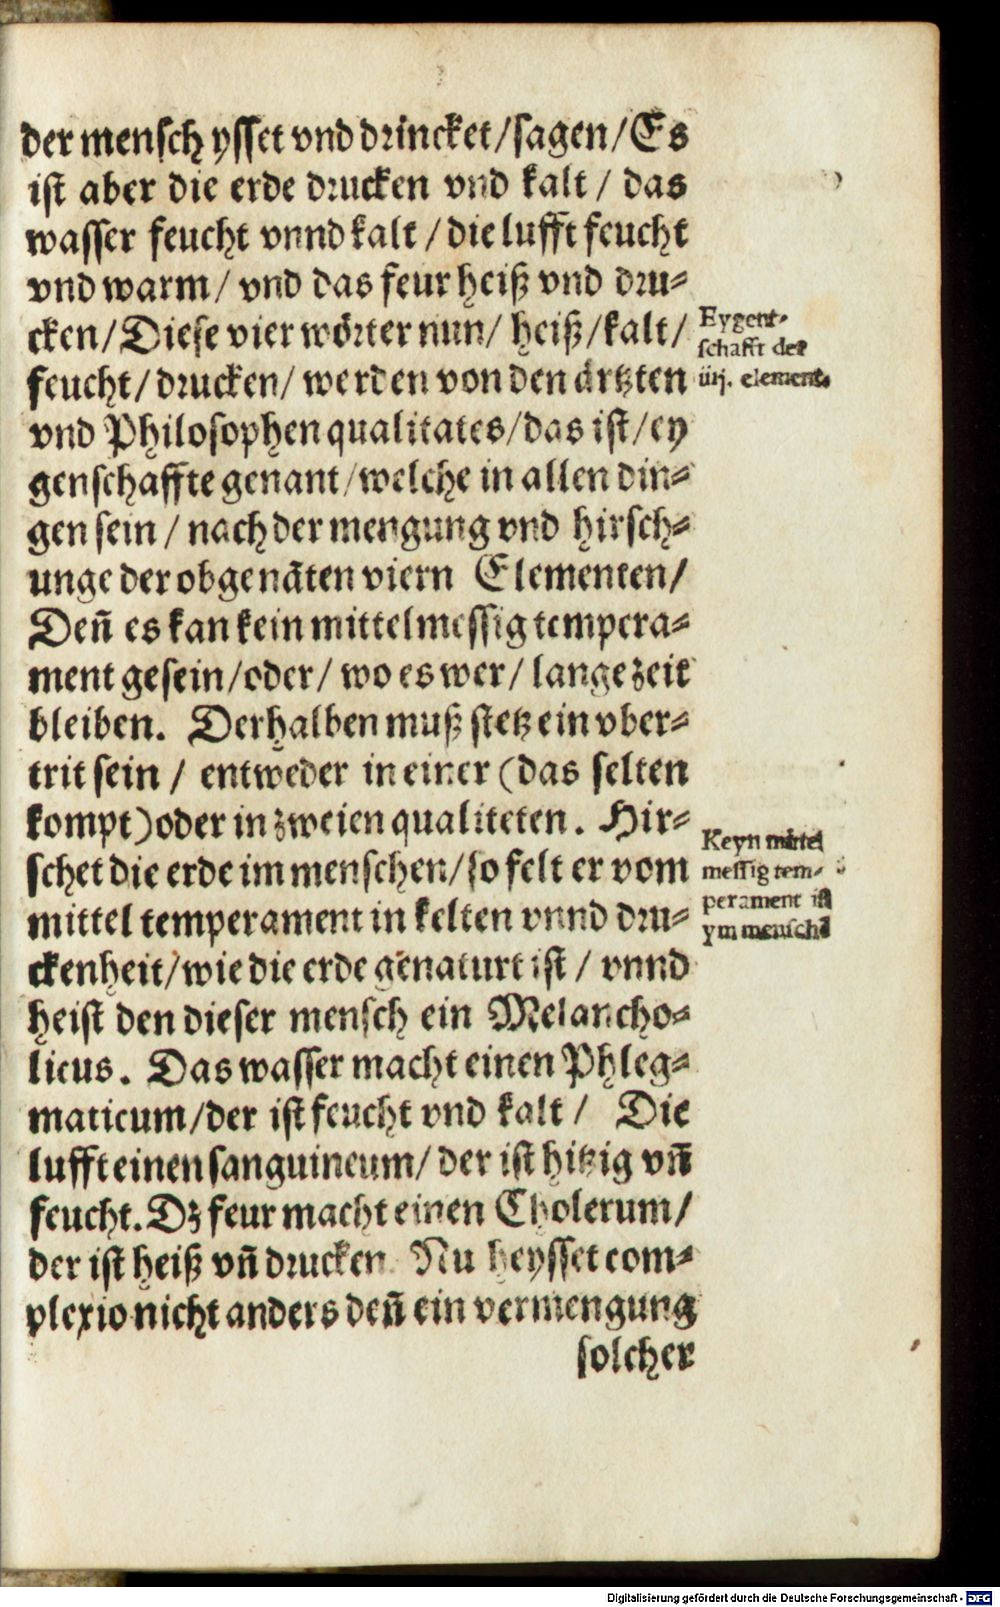 der mensch ysset vnd drincket/sagen/Es
ist aber die erde drucken vnd kalt / das
wasser feucht vnnd kalt / die lufft feucht
vnd warm / vnd das feur heiß vnd dru-
cken/Diese vier wörter nun/ heiß/kalt/
feucht/drucken/ werden von den ärtzten
vnd Philosophen qualitates/das ist/ey
genschaffte genant/welche in allen din-
gen sein / nach der mengung vnd hirsch-
unge der obgenāten viern Elementen/
Deñ es kan kein mittelmessig tempera-
ment gesein/oder/ wo es wer/ lange zeit
bleiben. Derhalben muß stetz ein vber-
trit sein / entweder in einer (das selten
kompt)oder in zweien qualiteten. Hir-
schet die erde im menschen/so felt er vom
mittel temperament in kelten vnnd dru-
ckenheit/wie die erde genaturt ist / vnnd
heist den dieser mensch ein Melancho-
licus. Das wasser macht einen Phleg-
maticum/der ist feucht vnd kalt / Die
lufft einen sanguineum/ der ist hitzig vñ
feucht. Dz feur macht einen Cholerum/
der ist heiß vñ drucken. Nu heysset com-
plexio nicht anders deñ ein vermengung
solcher
Eygent-
schafft der
iiij. element.
Keyn mittel
messig tem-
perament ist
ym mensche
Digitalisierung gefördert durch die Deutsche Forschungsgemeinschaft - DFG